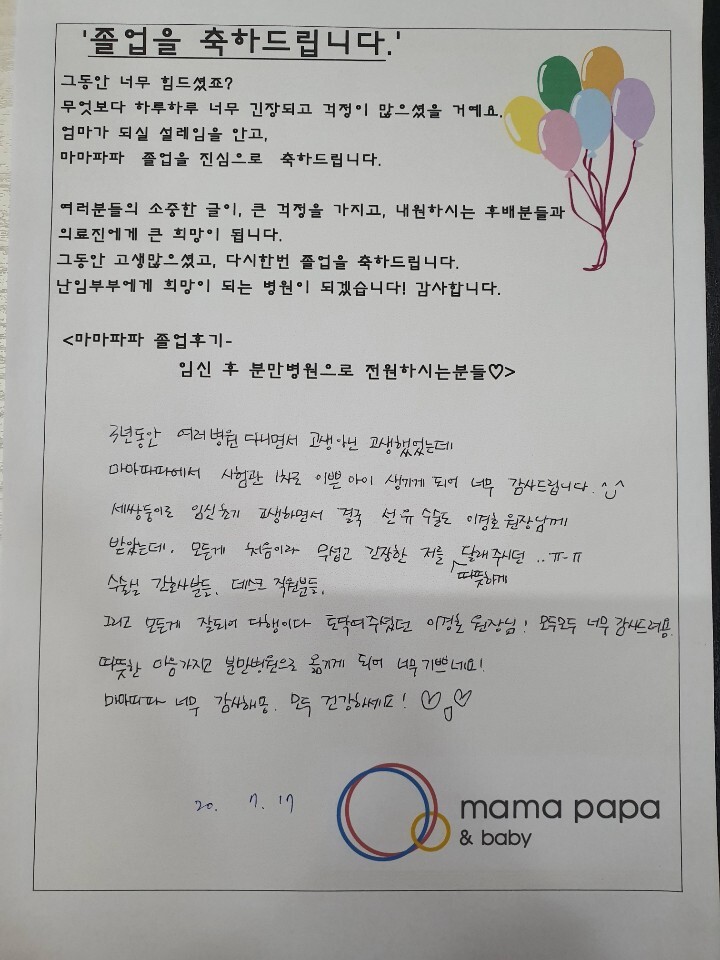 '졸업을 축하드립니다.'
그동안 너무 힘드셨죠?
무엇보다 하루하루 너무 긴장되고 걱정이 많으셨을 거예요.
엄마가 되실 설레임을 안고,
마마파파 졸업을 진심으로 축하드립니다.
여러분들의 소중한 글이, 큰 걱정을 가지고, 내원하시는 후배분들과
의료진에게 큰 희망이 됩니다.
그동안 고생많으셨고, 다시한번 졸업을 축하드립니다.
난임부부에게 희망이 되는 병원이 되겠습니다! 감사합니다.
<마마파파 졸업후기-
임신 후 분만병원으로 전원하시는분들♡>
주년동안 여러병원 다니면서 고생아닌 고생했었는데
마마파파에서 시험관 1차로 이쁜아이 생기게 되어 너무 감사드립니다. ^_^
세쌍둥이로 임신초기 고생하면서 결국 선유수술도 이경호원장님께
받았는데, 모든게 처음이라 무섭고 긴장한 저를 따뜻하게 달래주시던 ..ㅠ-ㅠ
수술실 간호사분들, 데스크 직원분들,
그리고 모든게 잘되어 다행이다 토닥여주셨던 이경호 원장님! 모두모두 너무 감사드려용
따뜻한 마음가지고 분만병원으로 옮기게 되어 너무기쁘네요!
마마파파 너무 감사해용. 모두 건강하세요! ♡♡
20. 7. 17
mama papa
& baby